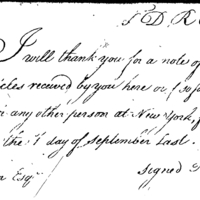 J D R
I will thank you for a note of
cles received by you here or (so fa
any other person at New York, f
the 1 day of September Last.
signed
Esqr